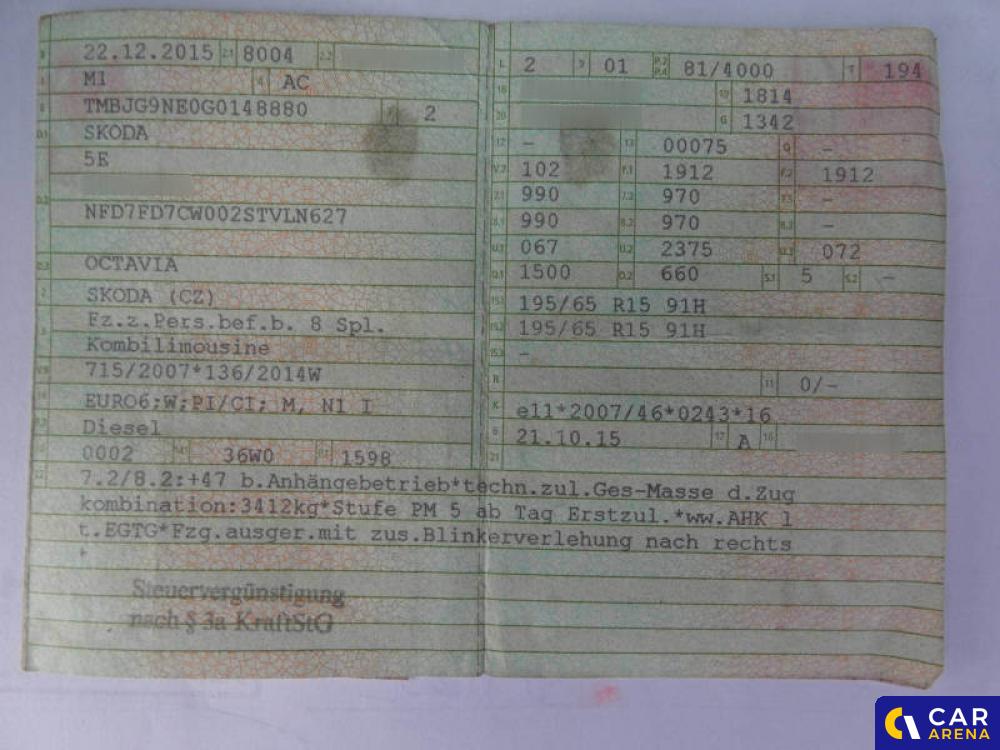 B 22.12.2015 2.1 8004 2.2
J M1 4 AC
E TMBJG9NE0G0148880 3 2
D.1 SKODA
5E
D.2
NFD7FD7CW002STVLN627
D.3 OCTAVIA
2 SKODA (CZ)
5 Fz.z.Pers.bef.b. 8 Spl.
Kombilimousine
V.9 715/2007*136/2014W
14 EURO6;W;PI/CI; M, N1 I
P.3 Diesel
10 0002 14.1 36W0 P.1 1598
L 2 9 01 P.2 P.4 81/4000 T 194
18 19 1814
20 G 1342
12 - 13 00075 Q -
V.7 102 F.1 1912 F.2 1912
7.1 990 7.2 970 7.3 -
8.1 990 8.2 970 8.3 -
U.1 067 U.2 2375 U.3 072
O.1 1500 O.2 660 S.1 5 S.2 -
15.1 195/65 R15 91H
15.2 195/65 R15 91H
15.3 -
R 11 0/-
K e11*2007/46*0243*16
6 21.10.15 17 A 16
21
22 7.2/8.2:+47 b.Anhängebetrieb*techn.zul.Ges-Masse d.Zug
kombination:3412kg*Stufe PM 5 ab Tag Erstzul.*ww.AHK l
t.EGTG*Fzg.ausger.mit zus.Blinkerverlehung nach rechts
*
Steuervergünstigung
nach § 3a KraftStG
CAR
ARENA